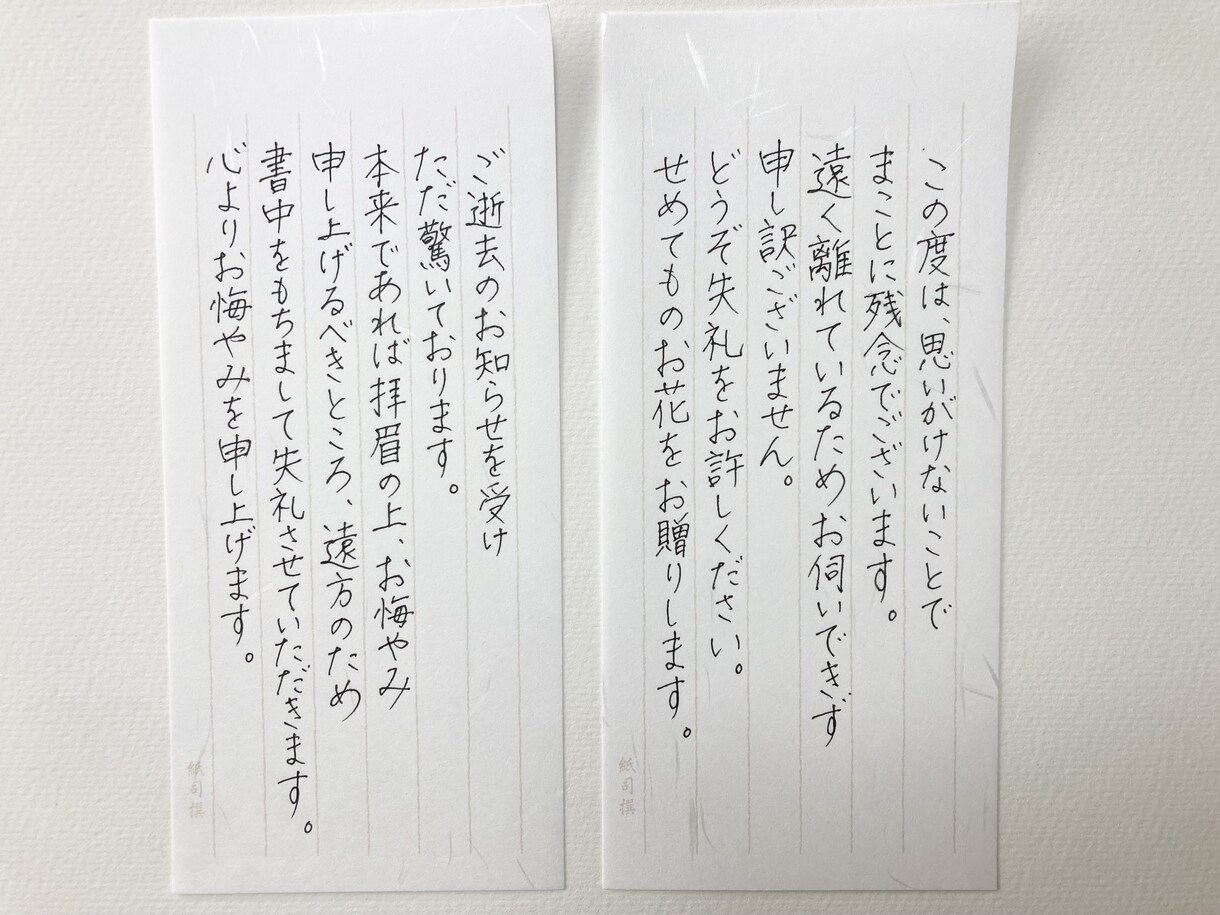 この度は、思いがけないことで
まことに残念でございます。
遠く離れているためお伺いできず
申し訳ございません。
どうぞ失礼をお許しください。
せめてものお花をお贈りします。
紙司撰
ご逝去のお知らせを受け
ただ驚いております。
本来であれば拝眉の上、お悔やみ
申し上げるべきところ、遠方のため
書中をもちまして失礼させていただきます。
心よりお悔やみを申し上げます。
紙司撰